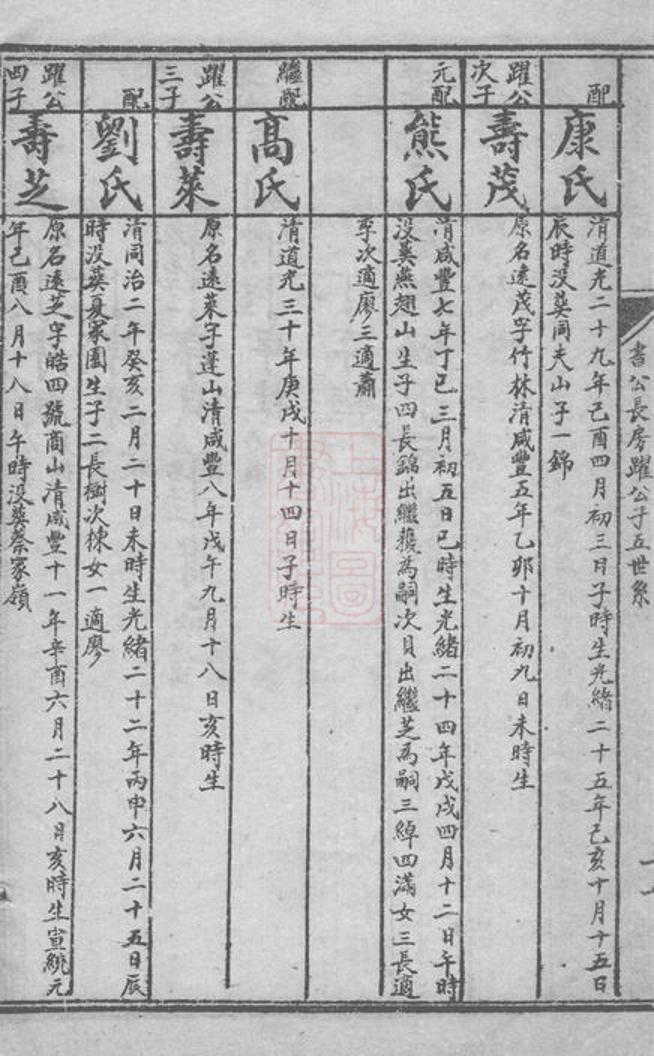 書公長房躍公子五世系
配
康氏
清道光二十九年己酉四月初三日子時生光緒二十五年己亥十月十五日
辰時没葬同夫山子一錦
躍公
次子
壽茂
原名遠茂字竹林清咸豐五年乙卯十月初九日未時生
元配
熊氏
清咸豐七年丁巳三月初五日巳時生光緒二十四年戊戌四月十二日午時
没葬燕翅山生子四長錦出繼穫為嗣次貝出繼芝為嗣三綽四滿女三長適
李次適廖三適蕭
繼配
高氏
清道光三十年庚戌十月十四日子時生
躍公
三子
壽萊
原名遠萊字蓬山清咸豐八年戊午九月十八日亥時生
配
劉氏
清同治二年癸亥二月二十日未時生光緒二十二年丙申六月二十五日辰
時没葬夏家園生子二長樹次棟女一適廖
躍公
四子
壽芝
原名遠芝字皓四號商山清咸豐十一年辛酉六月二十八日亥時生宣統元
年己酉八月十八日午時没葬蔡家嶺
上海圖